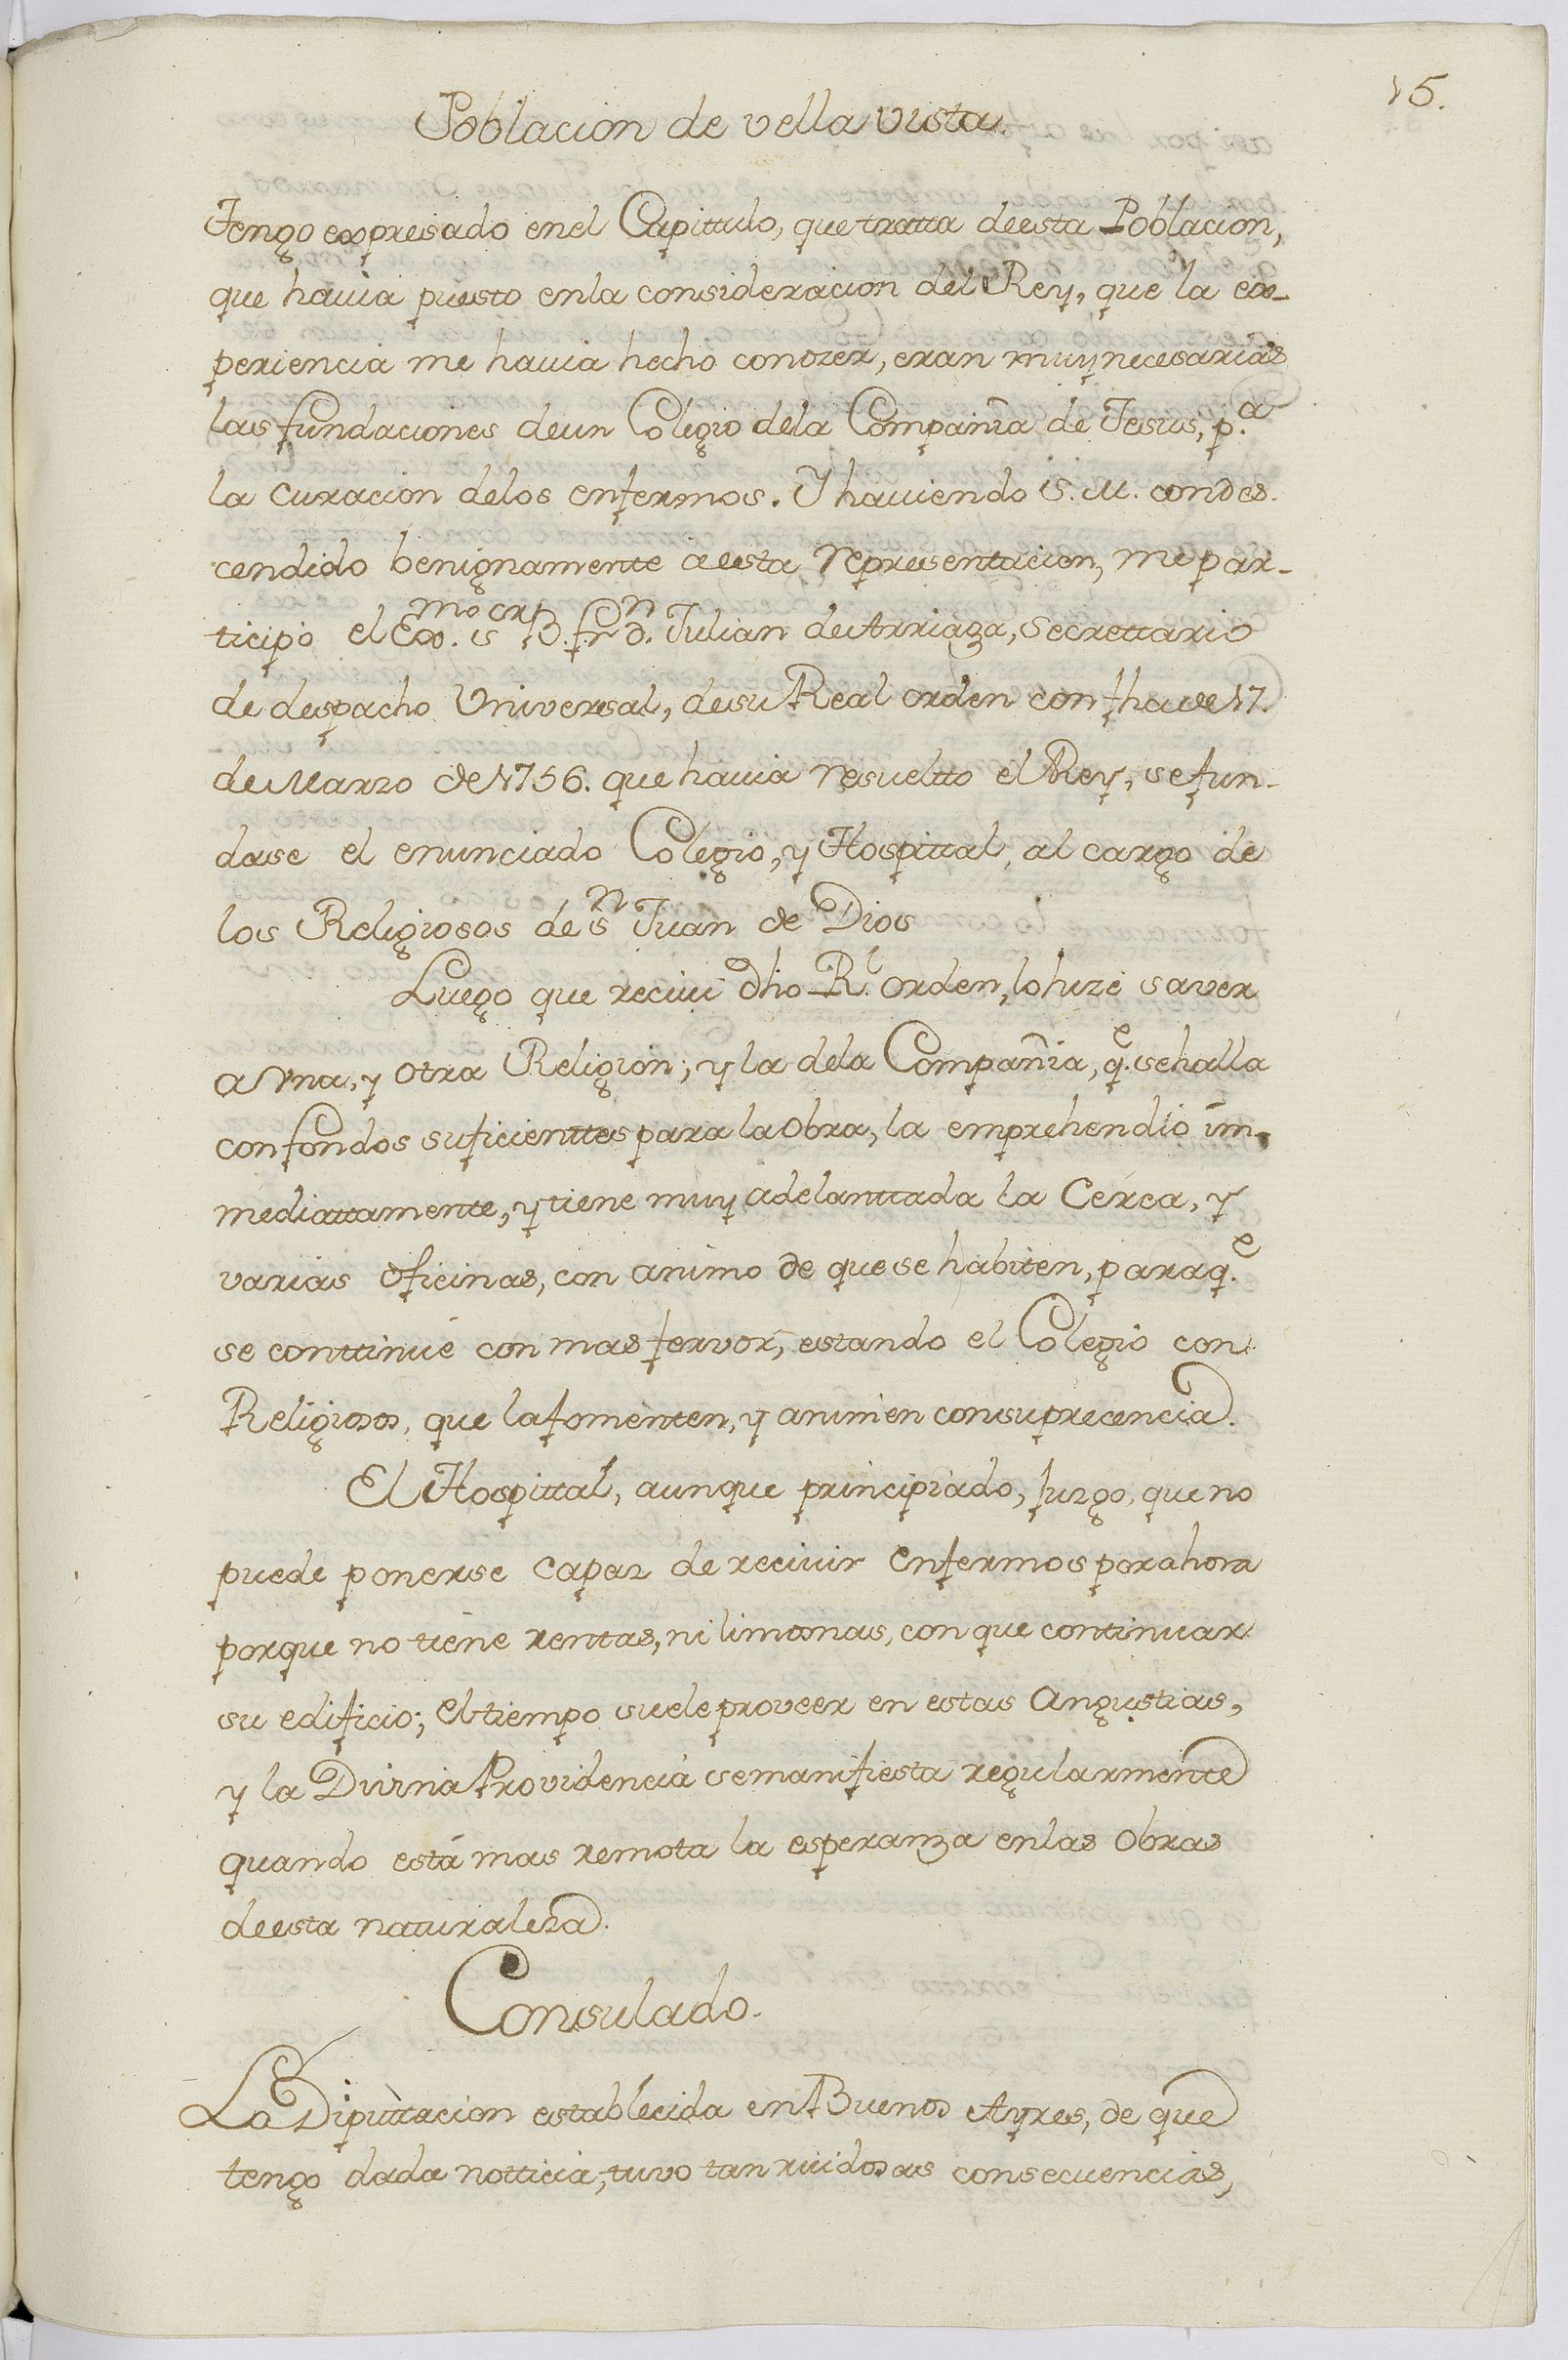 15.
Poblacion de vella vista.
Tengo expresado enel Capittulo, que tratta deesta Poblacion,
que hauia puesto enla consideracion del Rey, que la ex-
periencia me hauia hecho conozer, eran muy necesarias
las fundaciones deun Colegio dela Compañia de Jesus, p.a
la curacion delos enfermos. Y hauiendo S. M. condes-
cendido benignamente aesta representacion, me par-
ticipò el Exmo. sor B. fr dn. Julian de Arriaga, Secrettario
de despacho Universal, desu Real orden con fha de 17.
de Marzo de 1756. que hauia resueltto el Rey, se fun-
dase el enunciado Colegio, y Hospittal, al cargo de
los Religiosos de Sn Juan de Dios
Luego que reciui dho Rl. orden, lo hize saver
a Vna, y otra Religion; y la dela Compañia, q.e se halla
con fondos suficienttes para la obra, la emprehendiò im-
mediattamente, y tiene muy adelanttada la Cerca, y
varias oficinas, con animo de que se habiten, para q.e
se conttinuè con mas fervor, estando el Colegio con
Religiosos, que la fomenten, y animen con su precencia.
El Hospittal, aunque principiado, Juzgo, que no
puede ponerse capaz de reciuir enfermos por ahora
porque no tiene rentas, ni limosnas, con que continuar
su edificio; el tiempo suele proveer en estas Angustias,
y la Divina Providencia se manifiesta regularmente
quando està mas remota la esperanza enlas obras
deesta naturaleza.
Consulado.
La Diputtacion establecida en Buenos Ayres, de que
tengo dada notticia, tuvo tan ruidosas consecuencias,